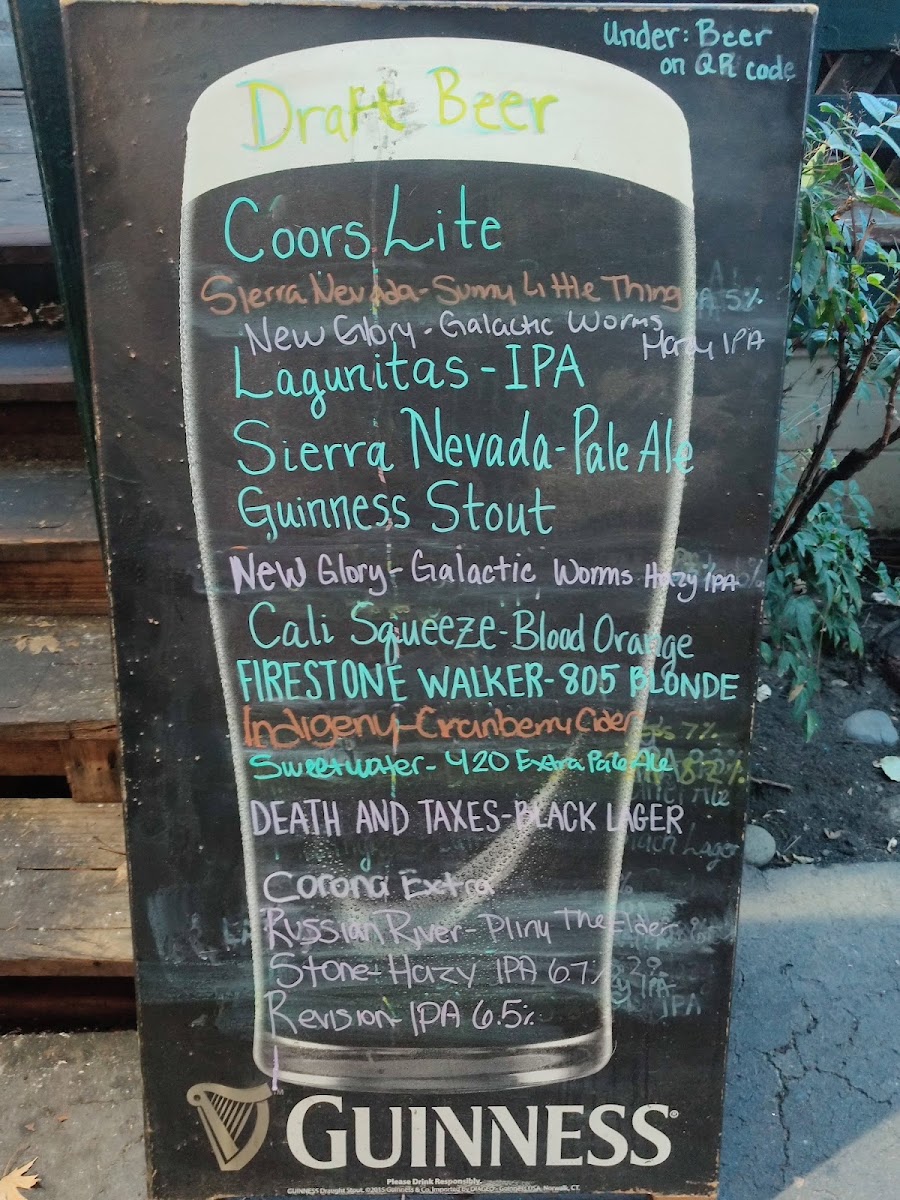 Under: Beer
on QR code
Draft Beer
Coors Lite
Sierra Nevada - Sunny Little Thing
5%
New Glory - Galactic Worms
Hazy IPA
Lagunitas - IPA
Sierra Nevada - Pale Ale
Guinness Stout
New Glory - Galactic Worms Hazy IPA
Cali Squeeze - Blood Orange
FIRESTONE WALKER - 805 BLONDE
Indigeny - Cranberry Cider
7%
Sweetwater - 420 Extra Pale Ale
8.2%
Ale
DEATH AND TAXES - BLACK LAGER
Lager
Corona Extra
Russian River - Pliny The Elder
Stone - Hazy IPA 6.7%
IPA
Revision - IPA 6.5%
IPA
GUINNESS®
Please Drink Responsibly.
GUINNESS Draught Stout. ©2015 Guinness & Co. Imported by DIAGEO - Guinness USA, Norwalk, CT.